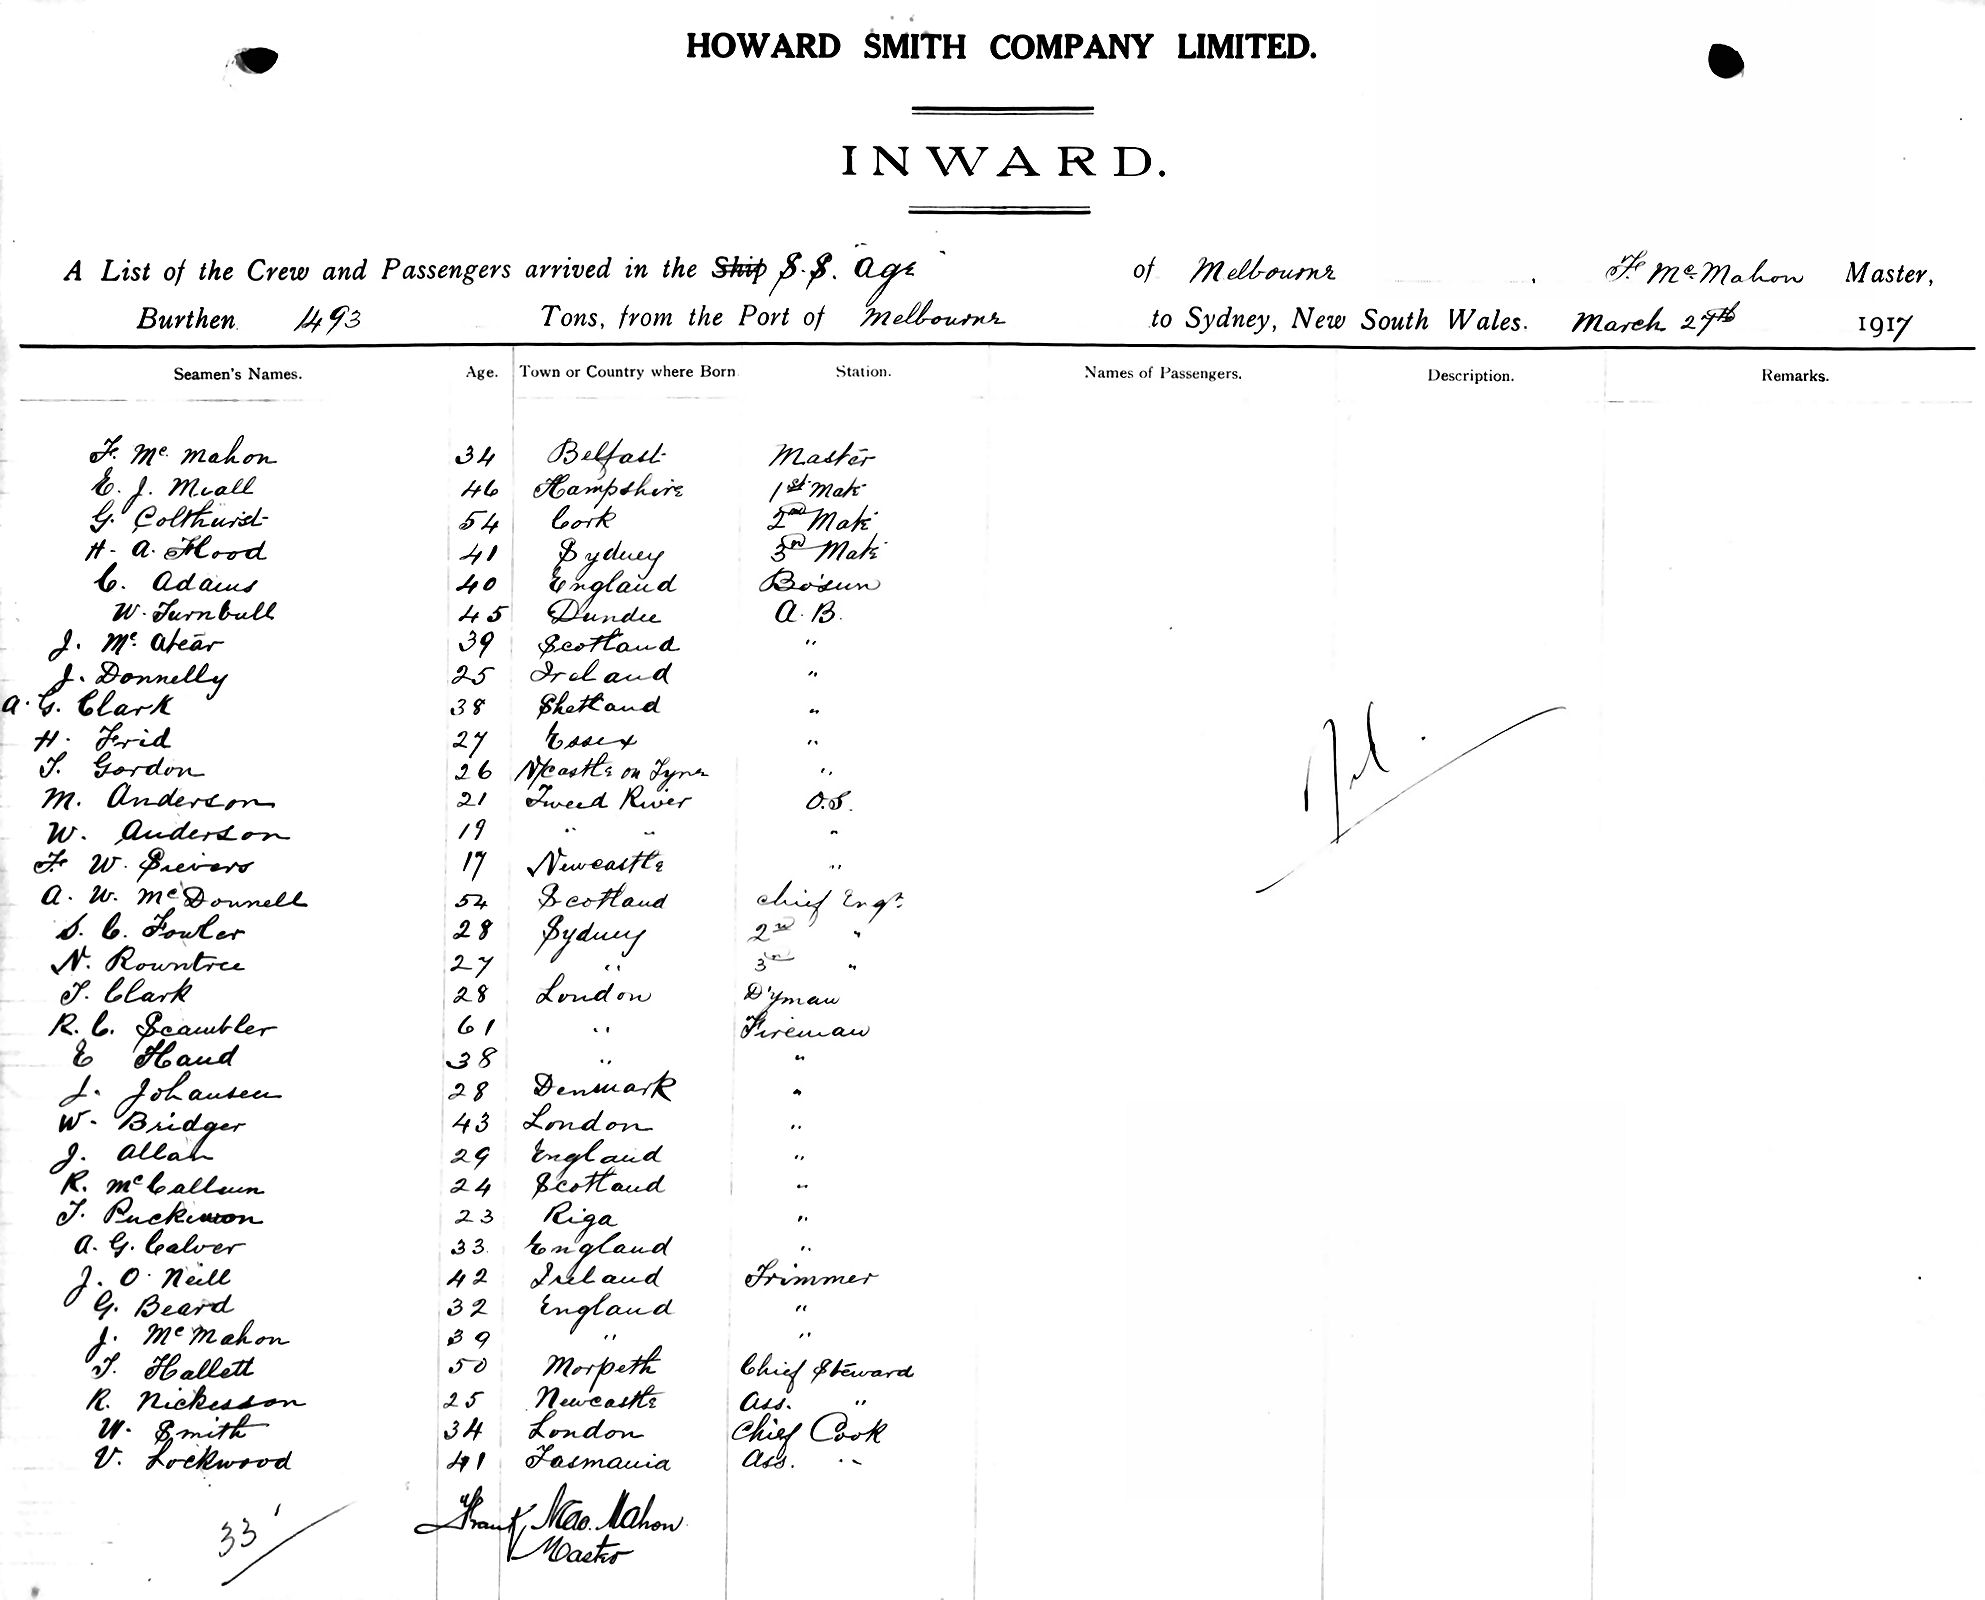 HOWARD SMITH COMPANY LIMITED.
INWARD.
A List of the Crew and Passengers arrived in the Ship S.S. Age of Melbourne F. McMahon Master,
Burthen 493 Tons, from the Port of Melbourne to Sydney, New South Wales. March 27th 1917
Seamen's Names. Age. Town or Country where Born. Station. Names of Passengers. Description. Remarks.
F. Mc Mahon 34 Belfast Master
E. J. Miall 46 Hampshire 1st Mate
G. Colthurst 54 Cork 2nd Mate
H. A. Flood 41 Sydney 3rd Mate
C. Adams 40 England Bo'sun
W. Turnbull 45 Dundee A.B.
J. Mc Atear 39 Scotland "
J. Donnelly 25 Ireland "
A. G. Clark 38 Shetland "
H. Frid 27 Essex "
T. Gordon 26 N/castle on Tyne "
M. Anderson 21 Tweed River O.S.
W. Anderson 19 " " "
F. W. Sievers 17 Newcastle "
A. W. McDonnell 54 Scotland Chief Engr.
S. C. Fowler 28 Sydney 2nd "
N. Rowntree 27 " 3rd "
T. Clark 28 London D'yman
R. C. Scambler 61 " Fireman
E Hand 38 " "
J. Johansen 28 Denmark "
W. Bridger 43 London "
J. Allan 29 England "
R. McCallum 24 Scotland "
T. 23 Riga "
A. G. Calver 33 England "
J. O'Neill 42 Ireland Trimmer
G. Beard 32 England "
J. McMahon 39 " "
T. Hallett 50 Morpeth Chief Steward
R. Nickesson 25 Newcastle Ass. "
W. Smith 34 London Chief Cook
V. Lockwood 41 Tasmania Ass. "
Nil.
33
Frank MacMahon
Master